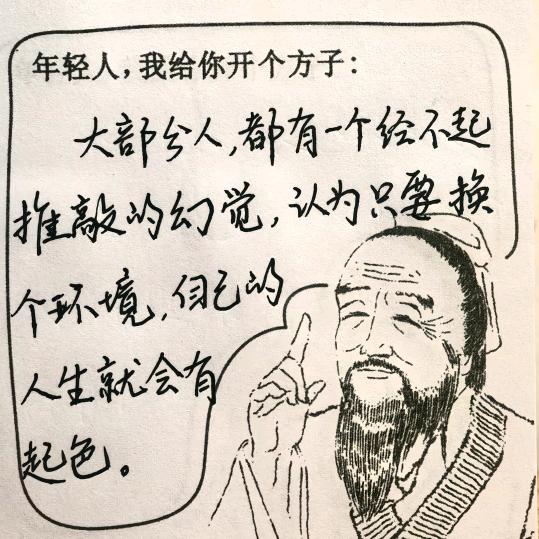 年轻人，我给你开个方子：
大部分人，都有一个经不起
推敲的幻觉，认为只要换
个环境，自己的
人生就会有
起色。